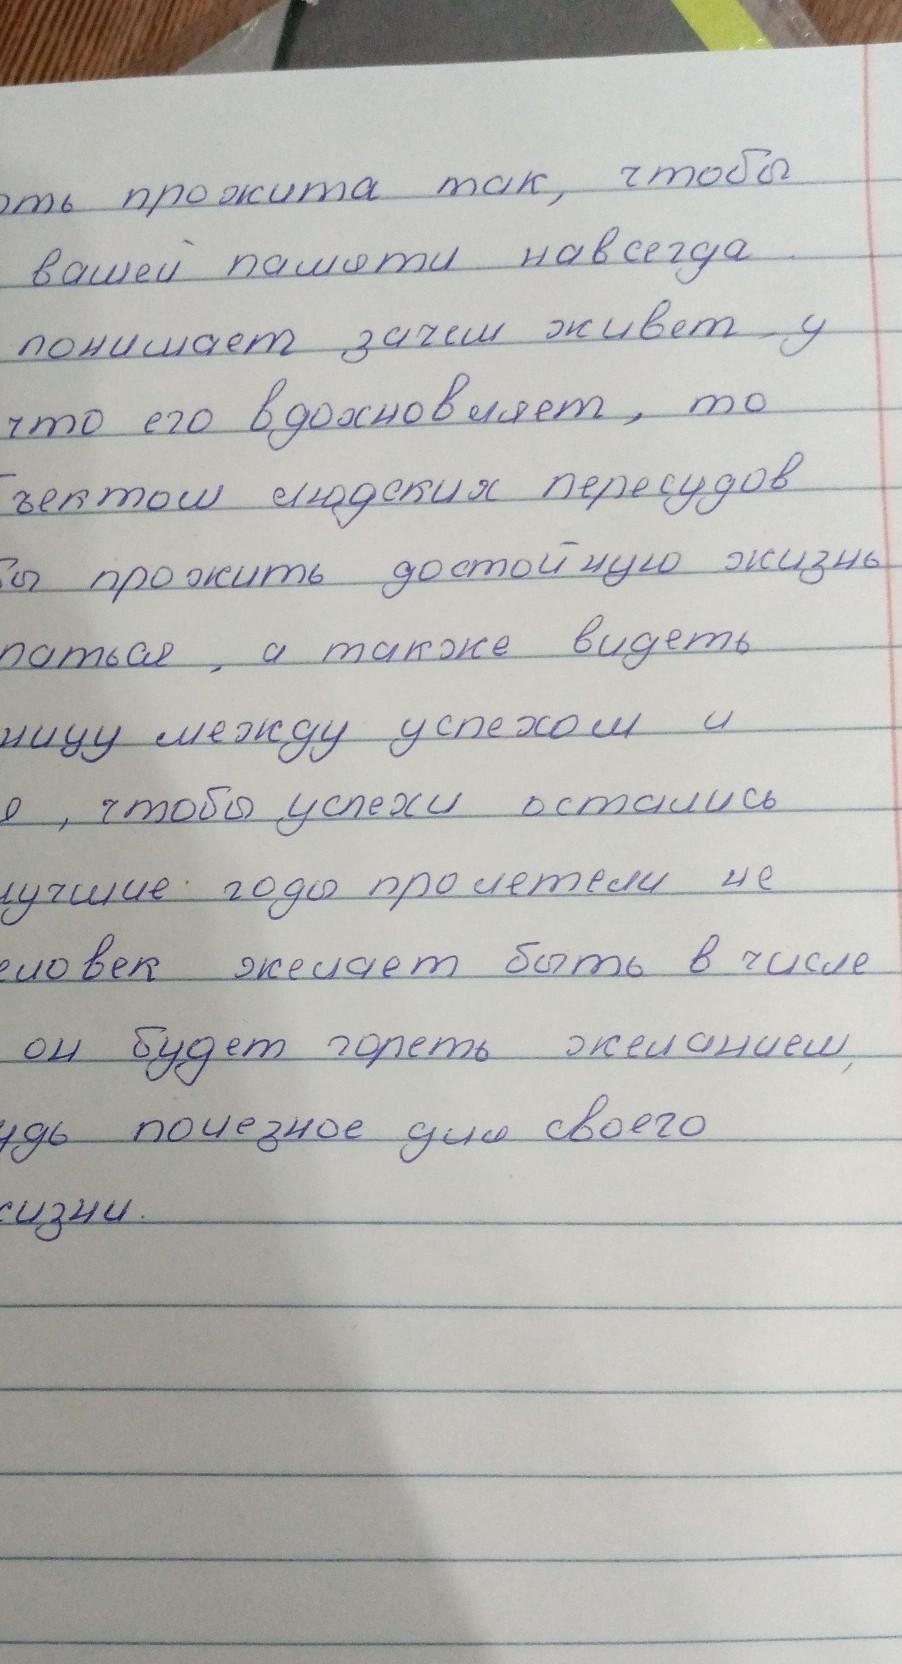 ыть прожита так, чтобы
вашей памяти навсегда
понимает зачем живет, у
что его вдохновляет, то
ъектом людских пересудов
бы прожить достойную жизнь
паться, а также видеть
ницу между успехом и
я, чтобы успехи остались
лучшие годы пролетели не
еловек желает быть в числе
он будет гореть желанием,
удь полезное для своего
жизни.